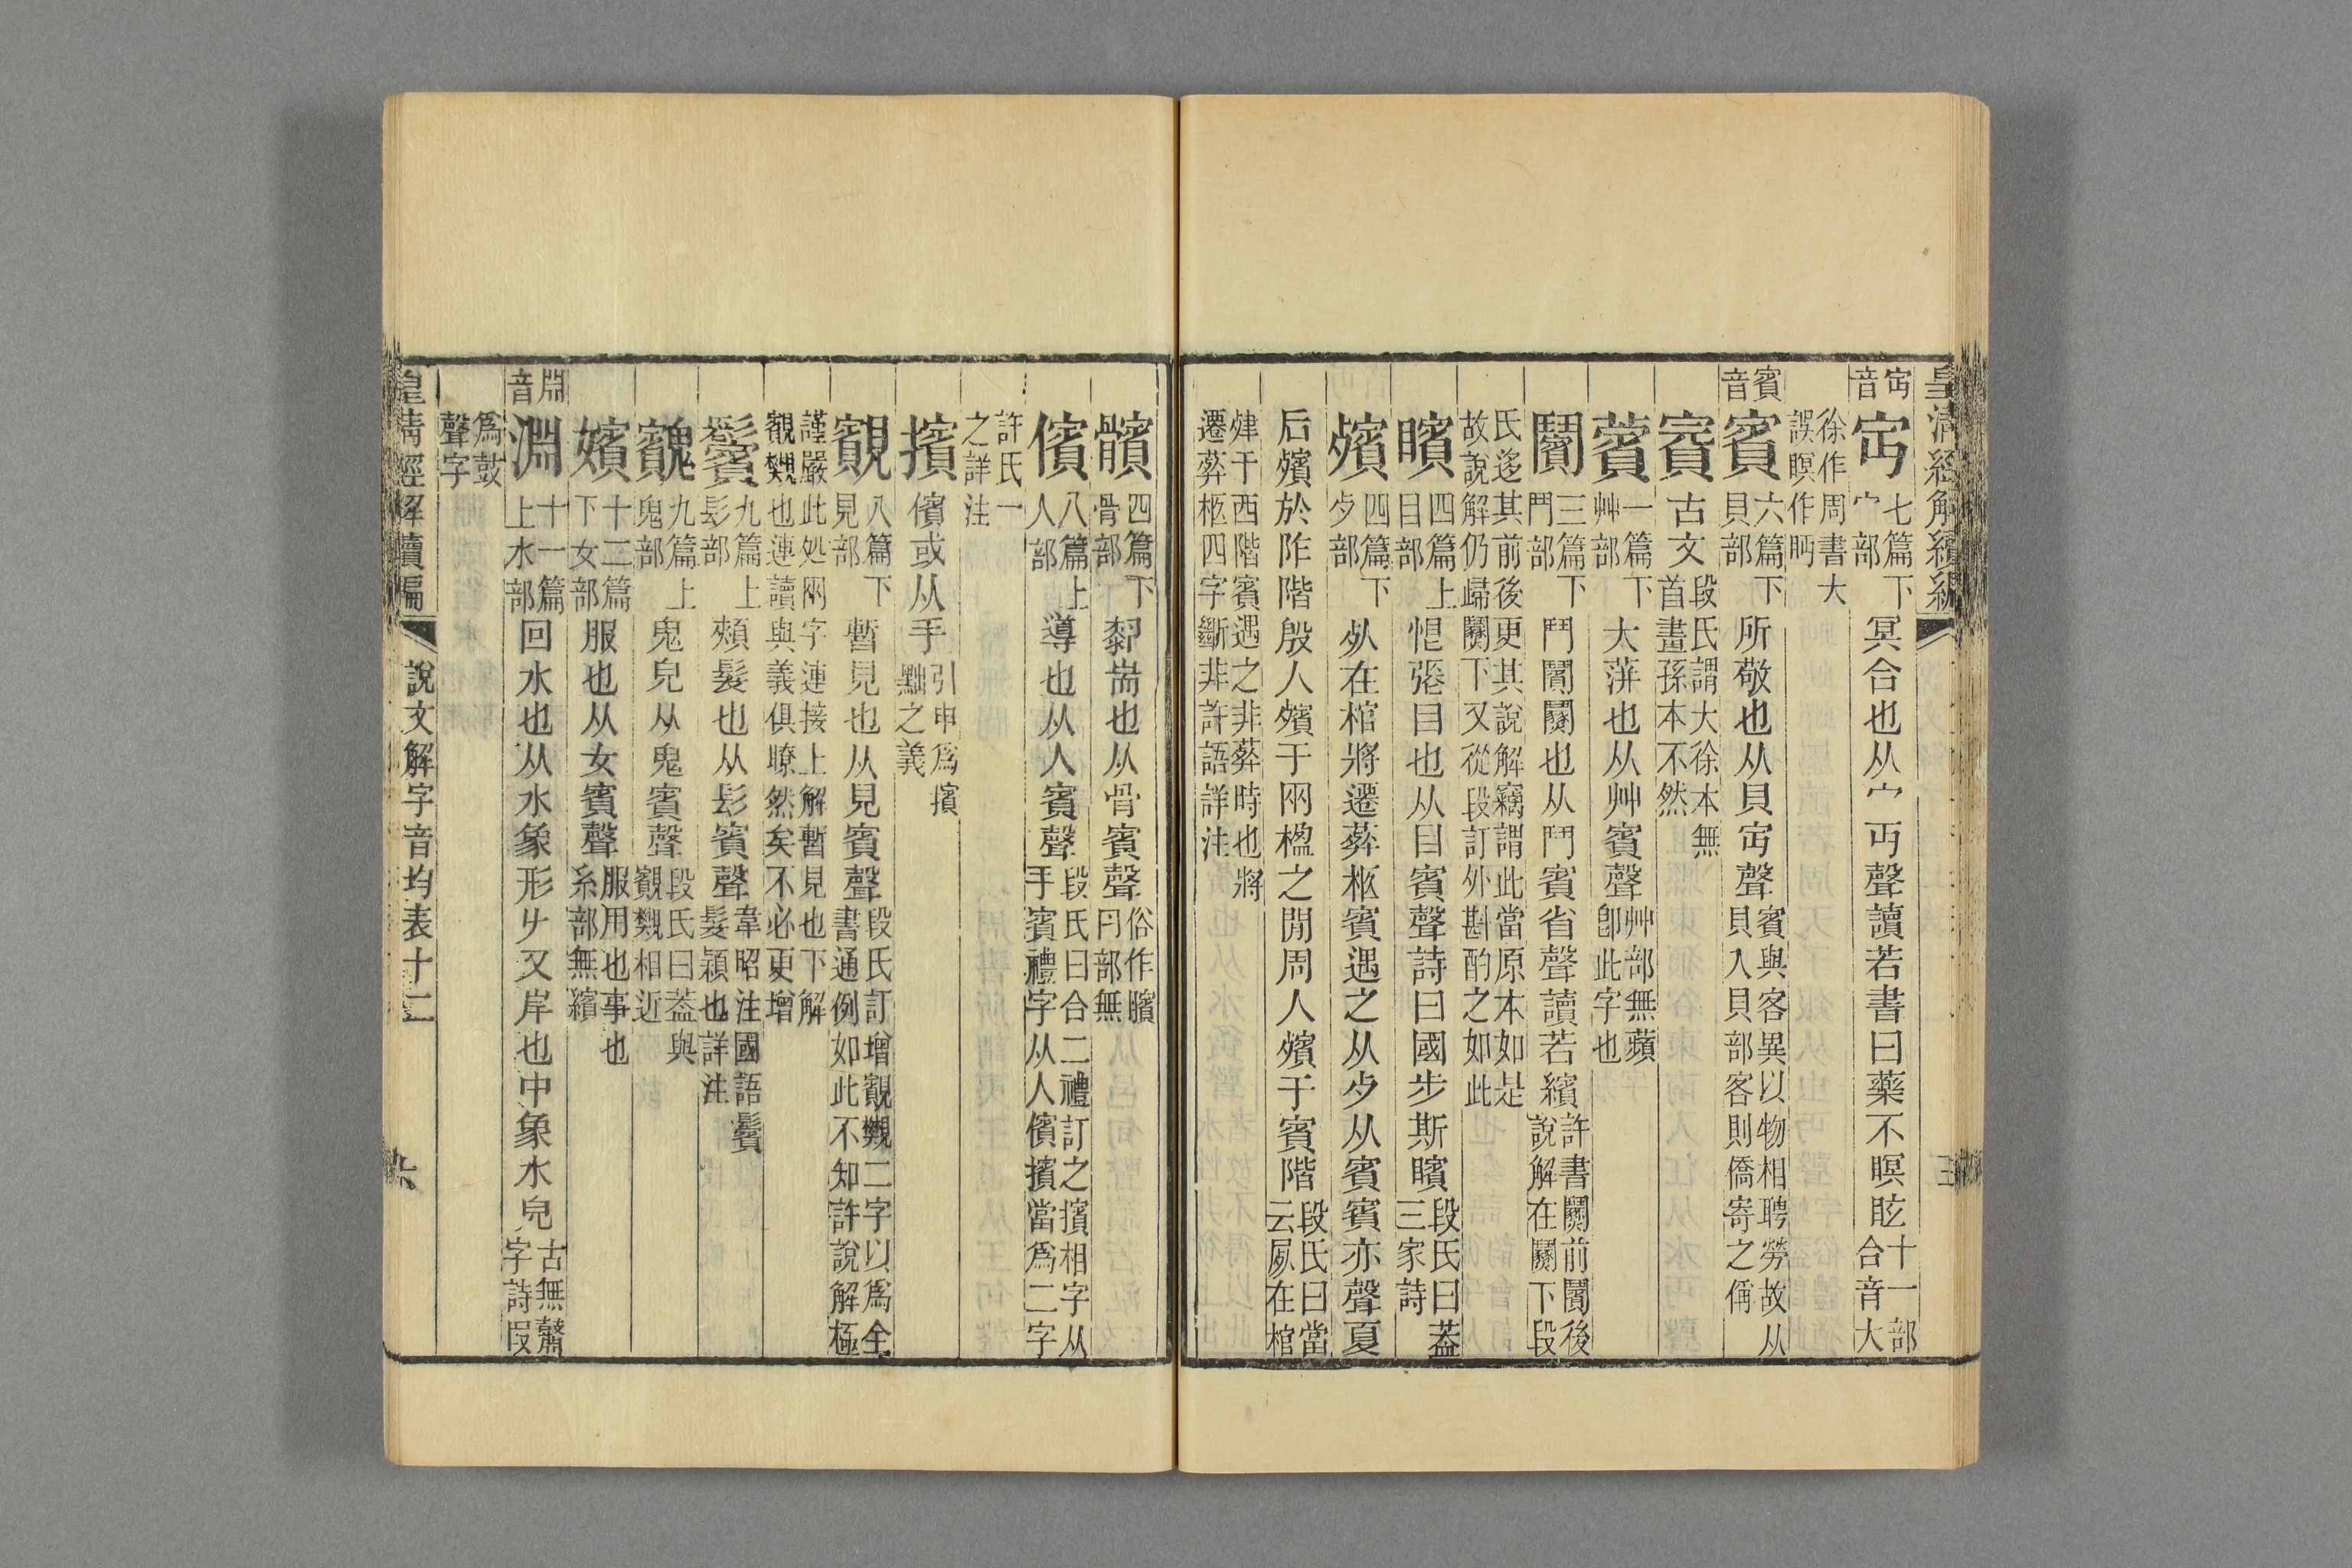 皇淸經解續編
宀音 㝉 七篇下宀部 冥合也从宀丏聲讀若書曰藥不瞑眩 十一部合音大
徐作周書大誤瞑作眄
賓音 賓 六篇下貝部 所敬也从貝㝉聲 賓與客異以物相聘勞故从貝入貝部客則僑寄之偁
賔 古文 段氏謂大徐本無首畫孫本不然
薲 一篇下艸部 大蓱也从艸賓聲 艸部無蘋卽此字也
鬭 三篇下鬥部 鬥鬩鬭也从鬥賓省聲讀若繽 許書鬭前鬩後說解在鬭下段
氏迻其前後更其說解竊謂此當原本如是故說解仍歸鬭下又從段訂外斟酌之如此
矉 四篇上目部 恨張目也从目賓聲詩曰國步斯矉 段氏曰葢三家詩
殯 四篇下歺部 𣦸在棺將遷葬柩賓遇之从歺从賓賓亦聲夏
后殯於阼階殷人殯于兩楹之閒周人殯于賓階 段氏曰當云屍在棺
肂于西階賓遇之非葬時也將遷葬柩四字斷非許語詳注
髕 四篇下骨部 厀耑也从骨賓聲 俗作臏肉部無
儐 八篇上人部 導也从人賓聲 段氏曰合二禮訂之擯相字从手賓禮字从人儐擯當爲二字
許氏一之詳注
擯 儐或从手 引申爲擯黜之義
覿 八篇下見部 暫見也从見賓聲 段氏訂增覿覢二字以爲全書通例如此不知許說解極
謹嚴此処兩字連接上解暫見也下解覿覢也連讀與義俱暸然矣不必更增
鬢 九篇上髟部 頰髮也从髟賓聲 韋昭注國語鬢髮穎也詳注
䰼 九篇上鬼部 鬼皃从鬼賓聲 段氏曰葢與覿覢相近
嬪 十二篇下女部 服也从女賓聲 服用也事也系部無繽
淵音 淵 十一篇上水部 回水也从水象形𠂢又岸也中象水皃 古無鼘字詩叚
爲鼓聲字
皇淸經解續編 說文解字音均表十二 六